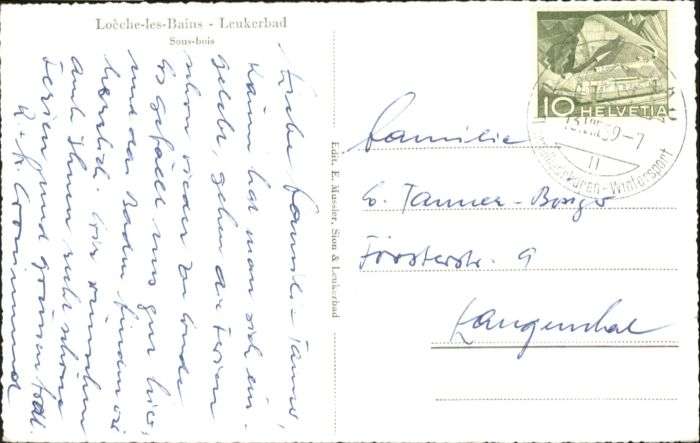 Loèche-les-Bains - Leukerbad
Sous-bois
Liebe Familie Tanner,
Kaum hat man sich ein-
gelebt, gehn die Ferien
schon wieder zu Ende
Es gefällt uns gut hier,
und das Baden finden wir
herrlich. Wir wünschen
auch Ihnen recht schöne
Ferien und grüssen herzl.
Edit. E. Mussler, Sion & Leukerbad
10 HELVETIA
59-7
11
Wintersport
Familie
E. Tanner-Bosiger
Försterstr. 9
Langenthal